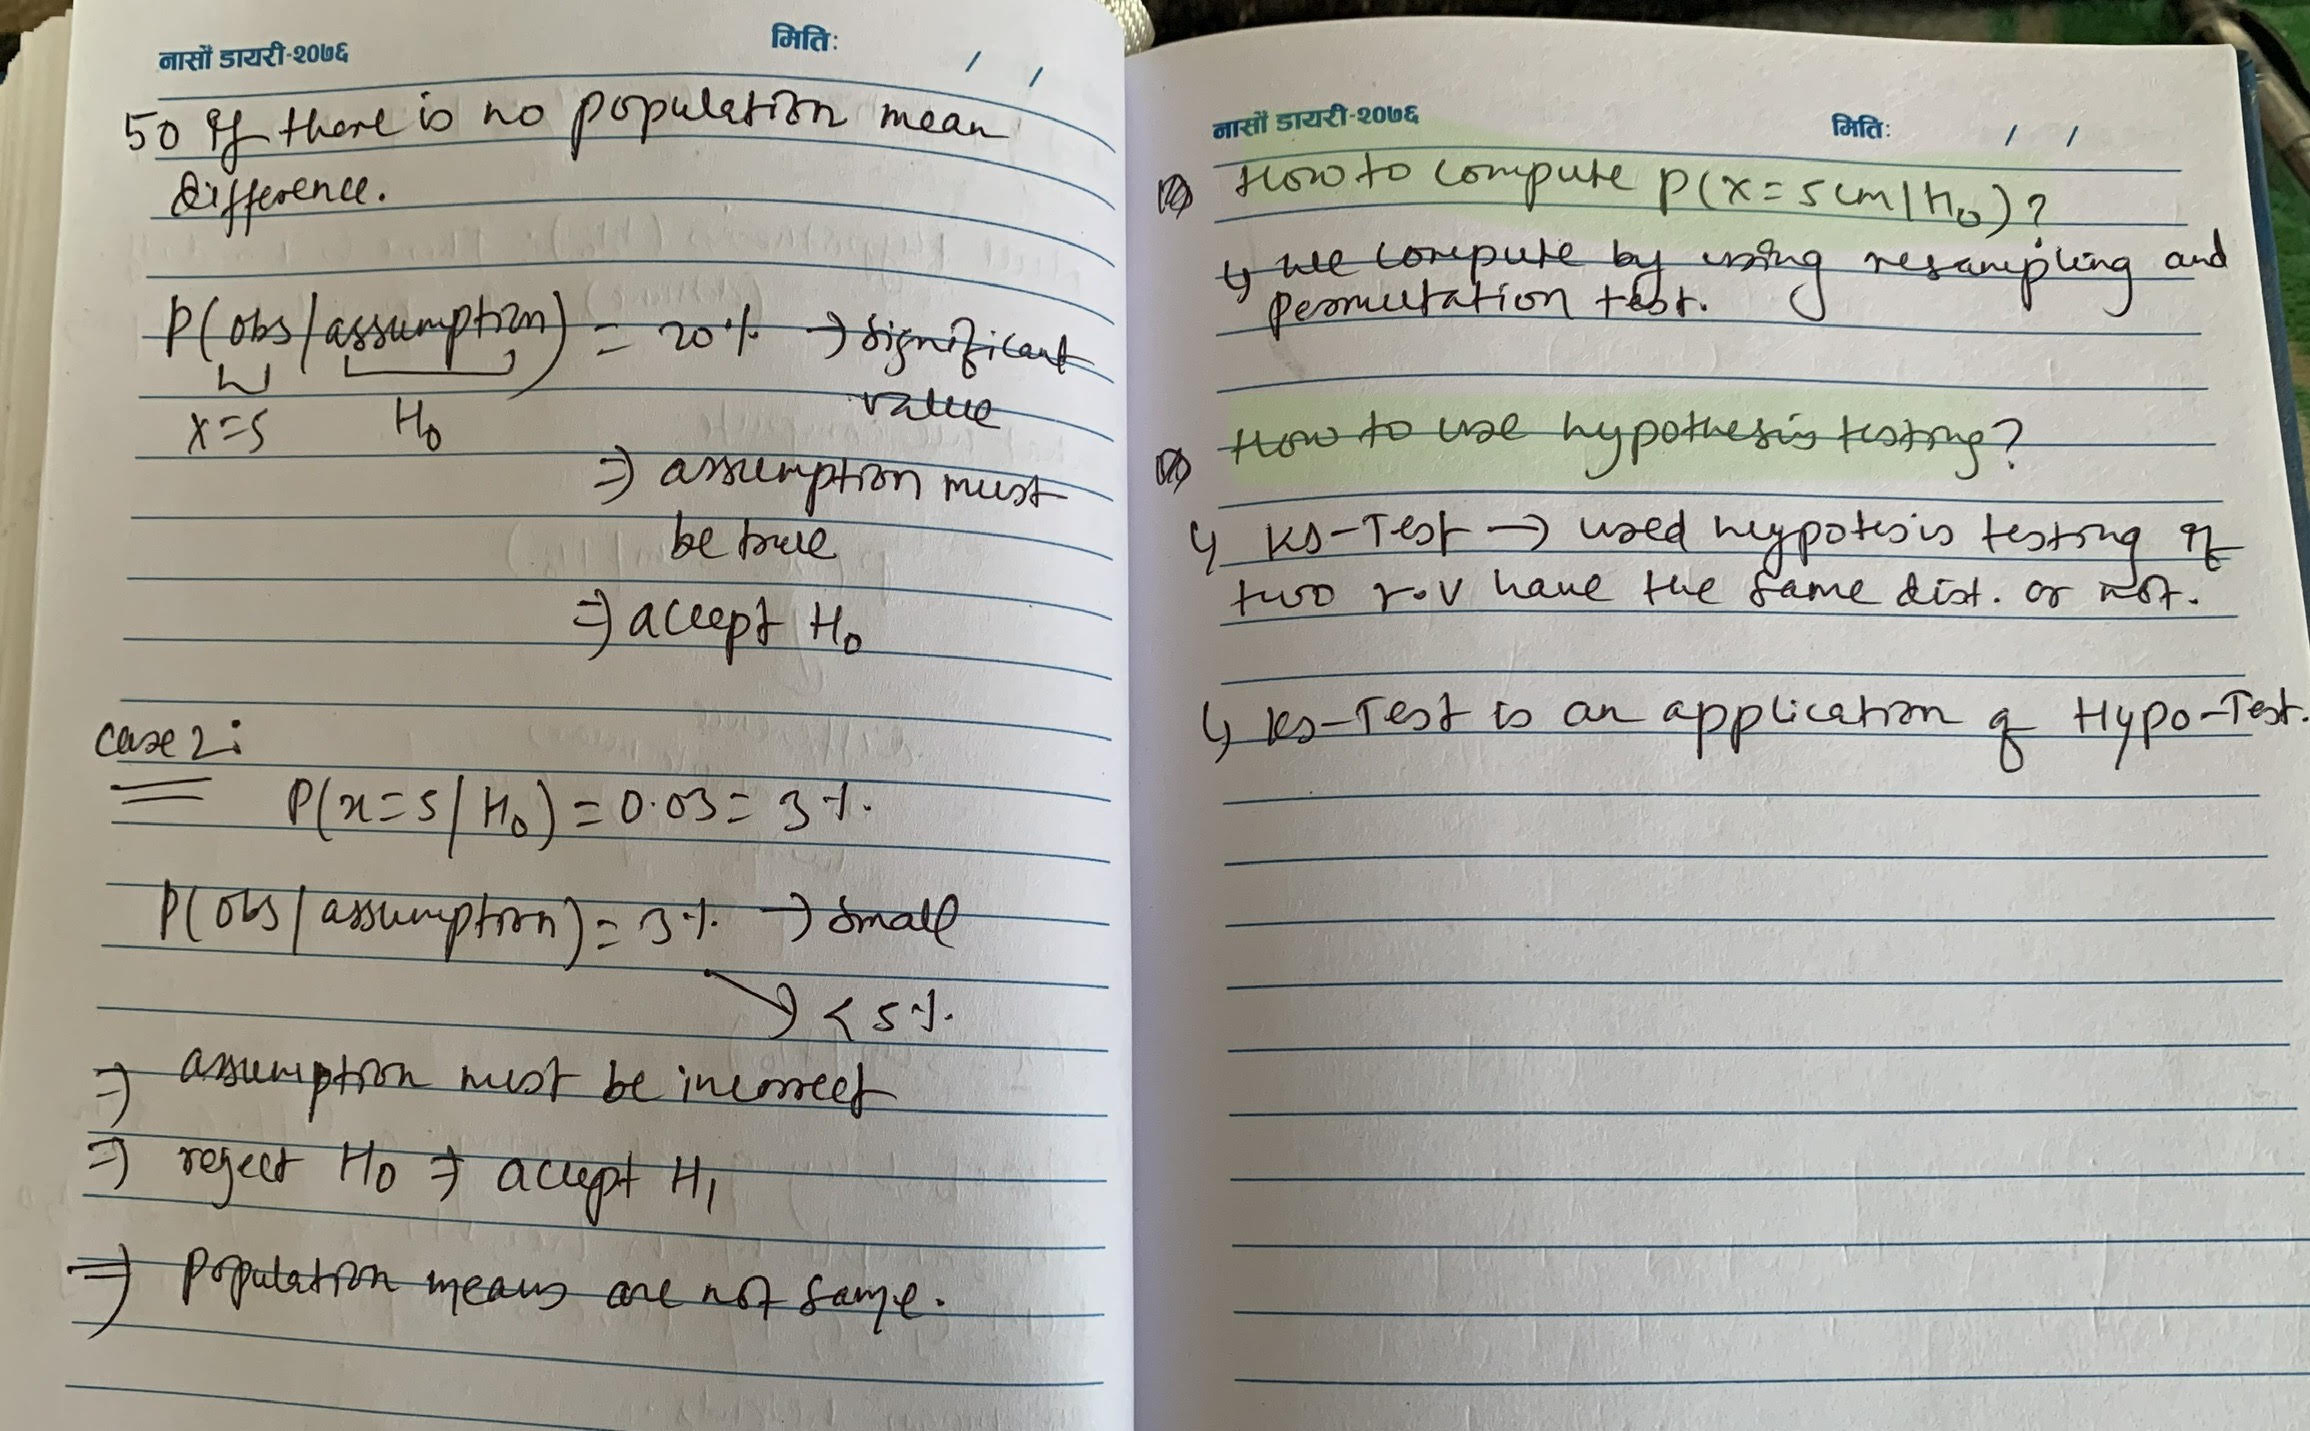 नासों डायरी-२०७६
मितिः / /
50 if there is no population mean
difference.
P(obs/assumption) = 20% → significant
value
x=5 H₀
⇒ assumption must
be true
⇒ accept H₀
case 2:
P(x=5/H₀) = 0.03 = 3%.
P(obs/assumption) = 3% → small
→ < 5%.
⇒ assumption must be incorrect
⇒ reject H₀ ⇒ accept H₁
⇒ population means are not same.
नासों डायरी-२०७६
मितिः / /
How to compute P(x=5cm/H₀)?
↳ We compute by using resampling and
permutation test.
How to use hypothesis testing?
↳ KS-Test → used hypotesis testing if
two r.v have the same dist. or not.
↳ KS-Test is an application of Hypo-Test.